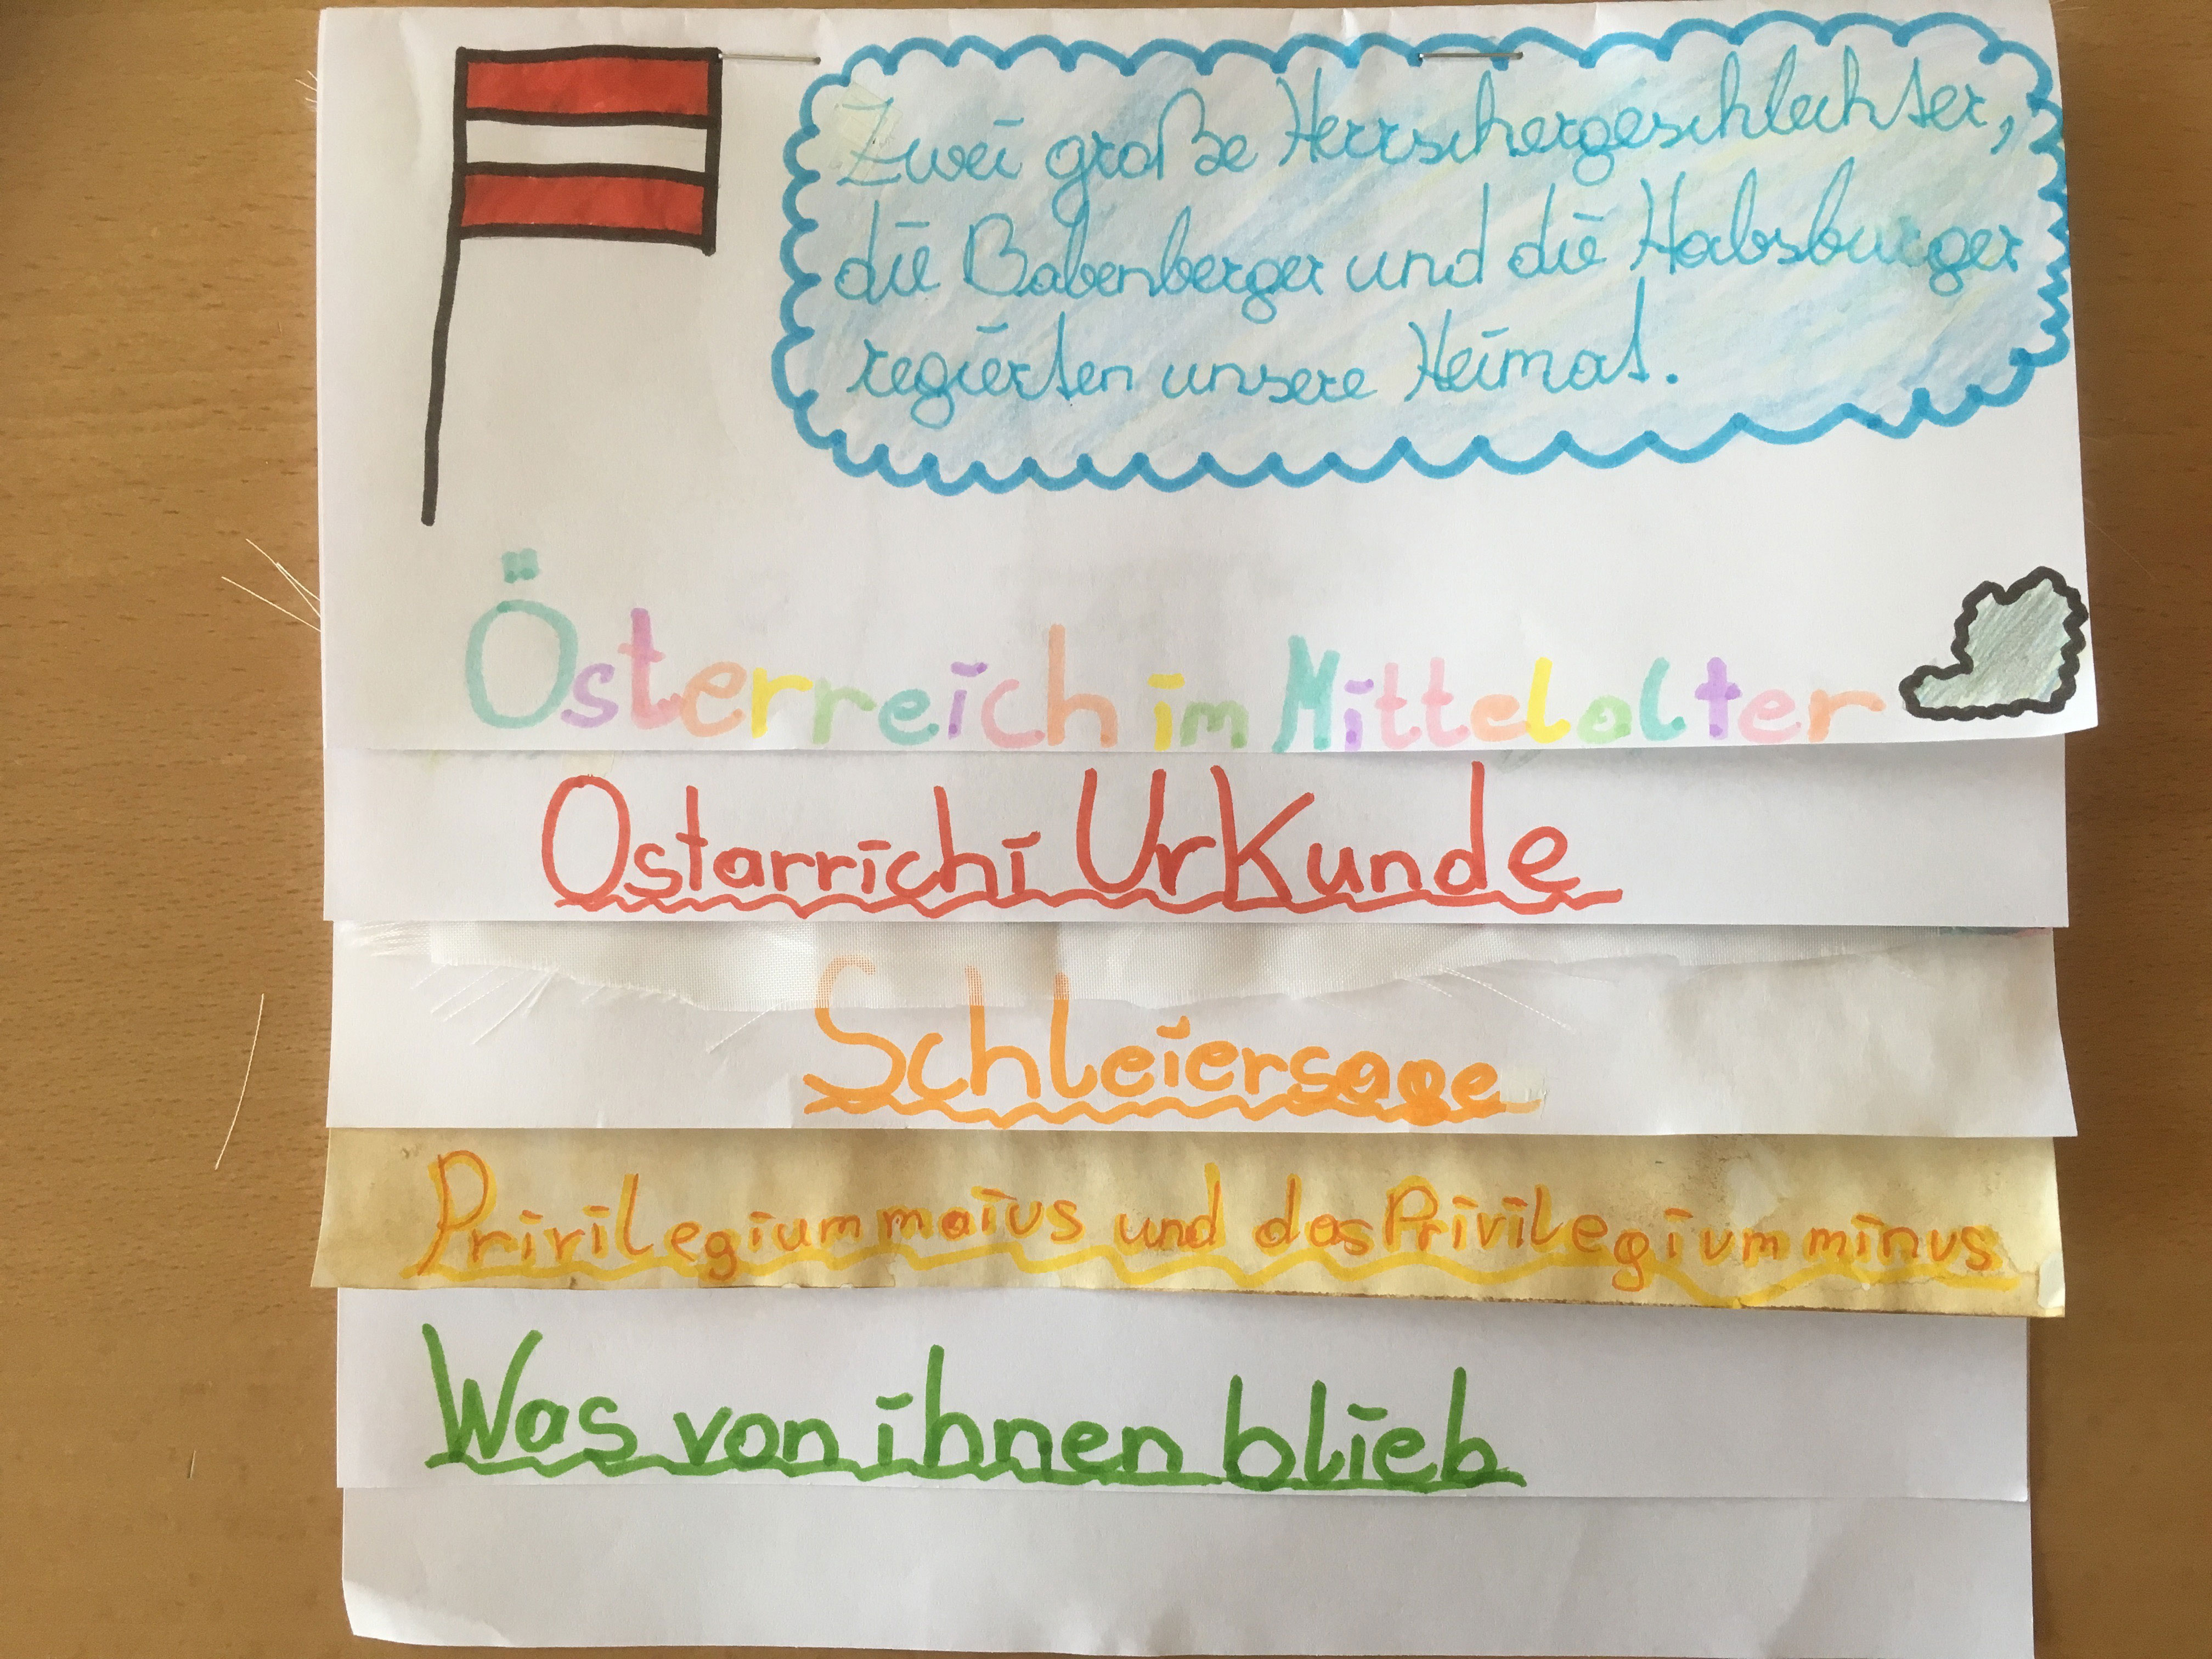 Zwei große Herrschergeschlechter,
die Babenberger und die Habsburger
regierten unsere Heimat.
Österreich im Mittelalter
Ostarrichi Urkunde
Schleiersage
Privilegium maius und das Privilegium minus
Was von ihnen blieb